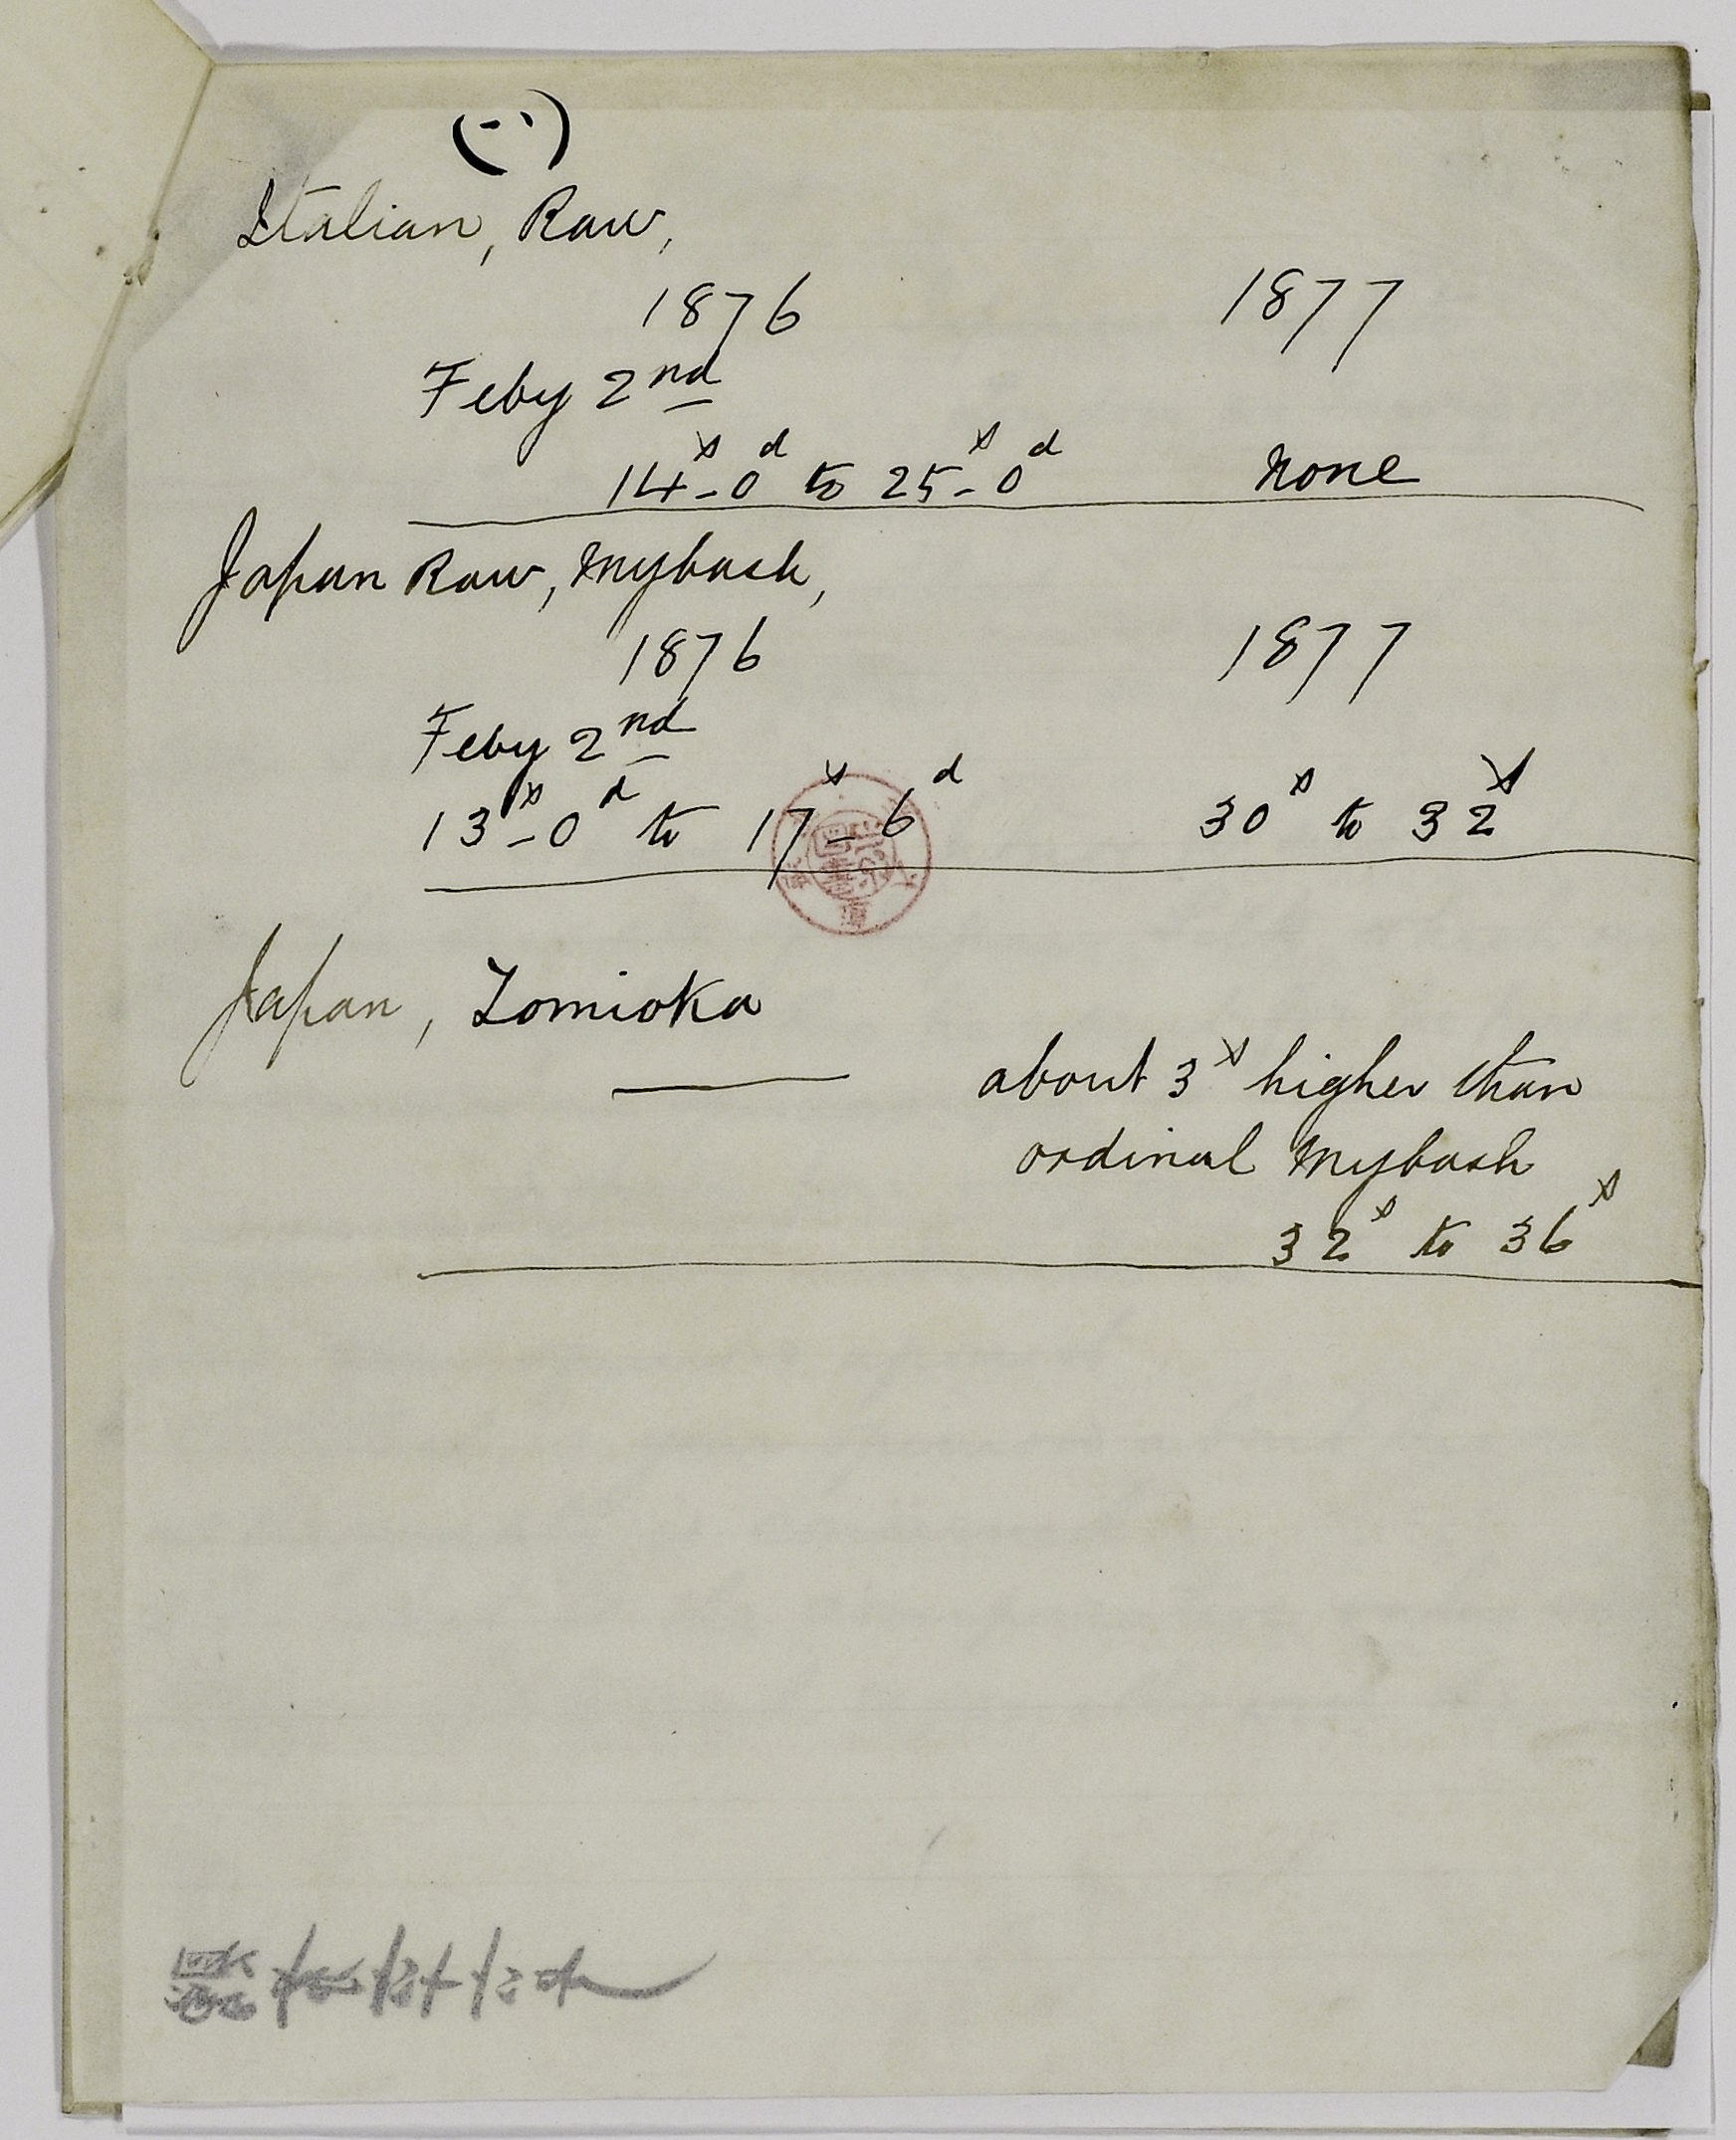 Italian, Raw,
1876 1877
Feby 2nd
14s-0d to 25s-0d none
Japan Raw, Mybash,
1876 1877
Feby 2nd
13s-0d to 17s-6d 30s to 32s
Japan, Tomioka
about 3s higher than
ordinal Mybash
32s to 36s